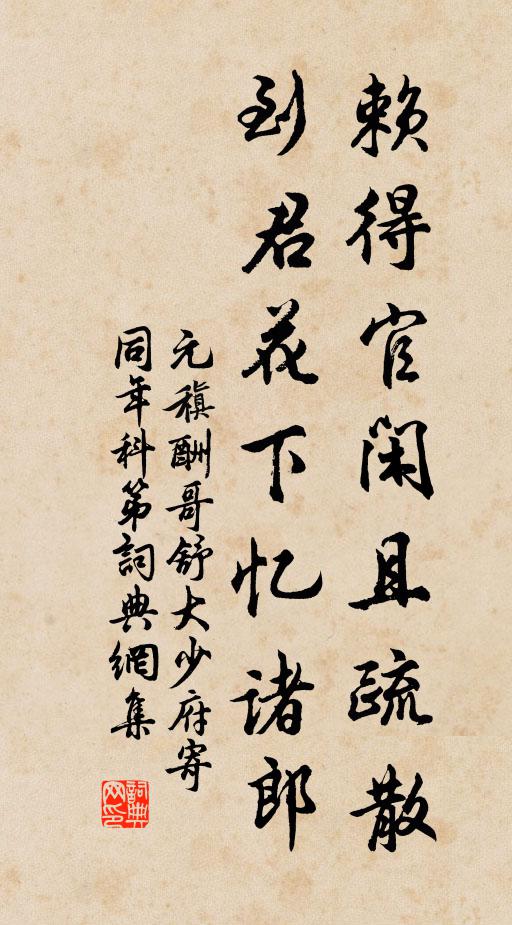 赖得官闲且疏散
到君花下忆诸郎
元稹酬哥舒大少府寄
同年科第詞典網集
詞典
网印